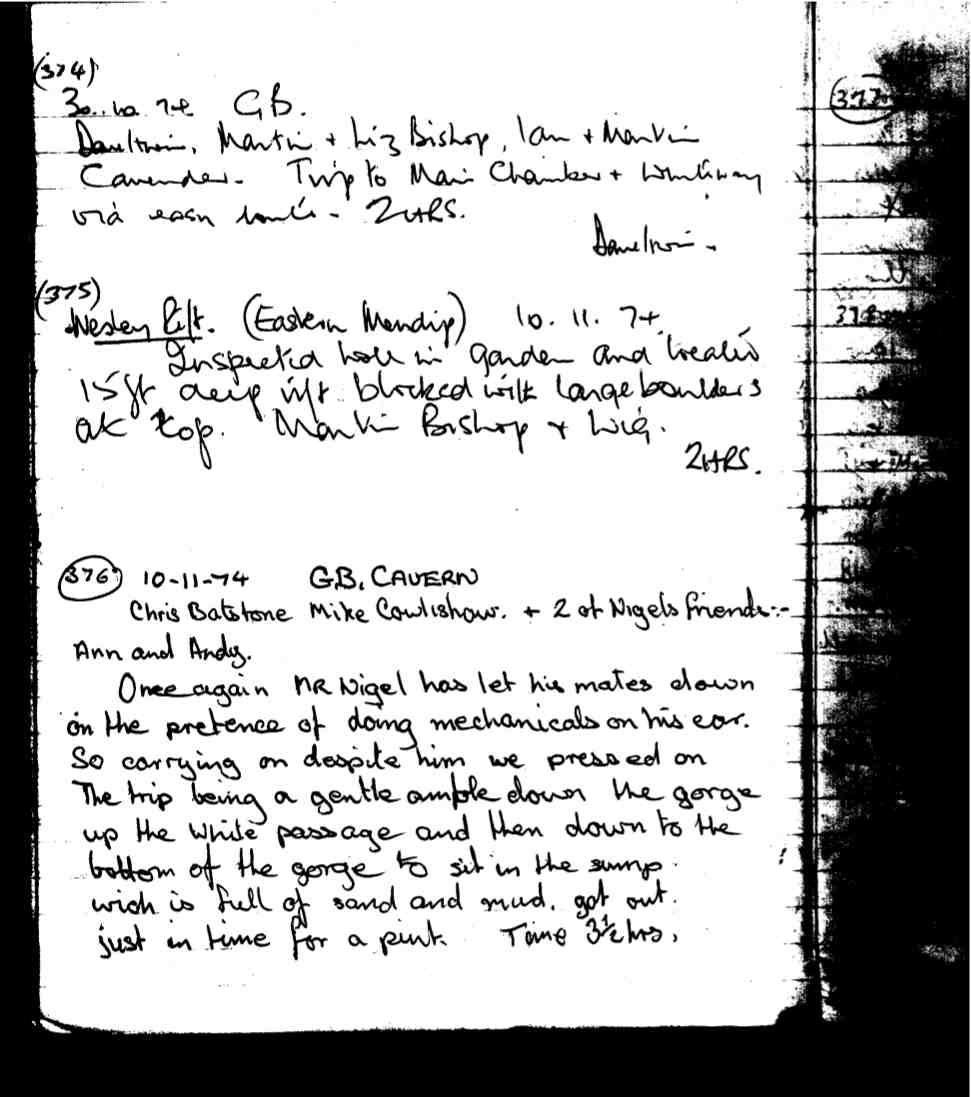 (374)
30.10.74 G.B.
Dave Irwin, Martin + Liz Bishop, Ian + Martin
Cavender. Trip to Main Chamber +
via easy route - 2HRS.
Dave Irwin -
(375)
Wesley Rift. (Eastern Mendip) 10.11.74
Inspected hole in garden and located
15ft deep rift blocked with large boulders
at top. Martin Bishop + Wig.
2HRS.
(376) 10-11-74 G.B. CAVERN
Chris Batstone Mike Cowlishaw. + 2 of Nigels friends:-
Ann and Andy.
Once again MR Nigel has let his mates down
on the pretence of doing mechanicals on his car.
So carrying on despite him we pressed on
The trip being a gentle amble down the gorge
up the White passage and then down to the
bottom of the gorge to sit in the sump.
wich is full of sand and mud. got out.
just in time for a pint. Time 3½ hrs.
377
378